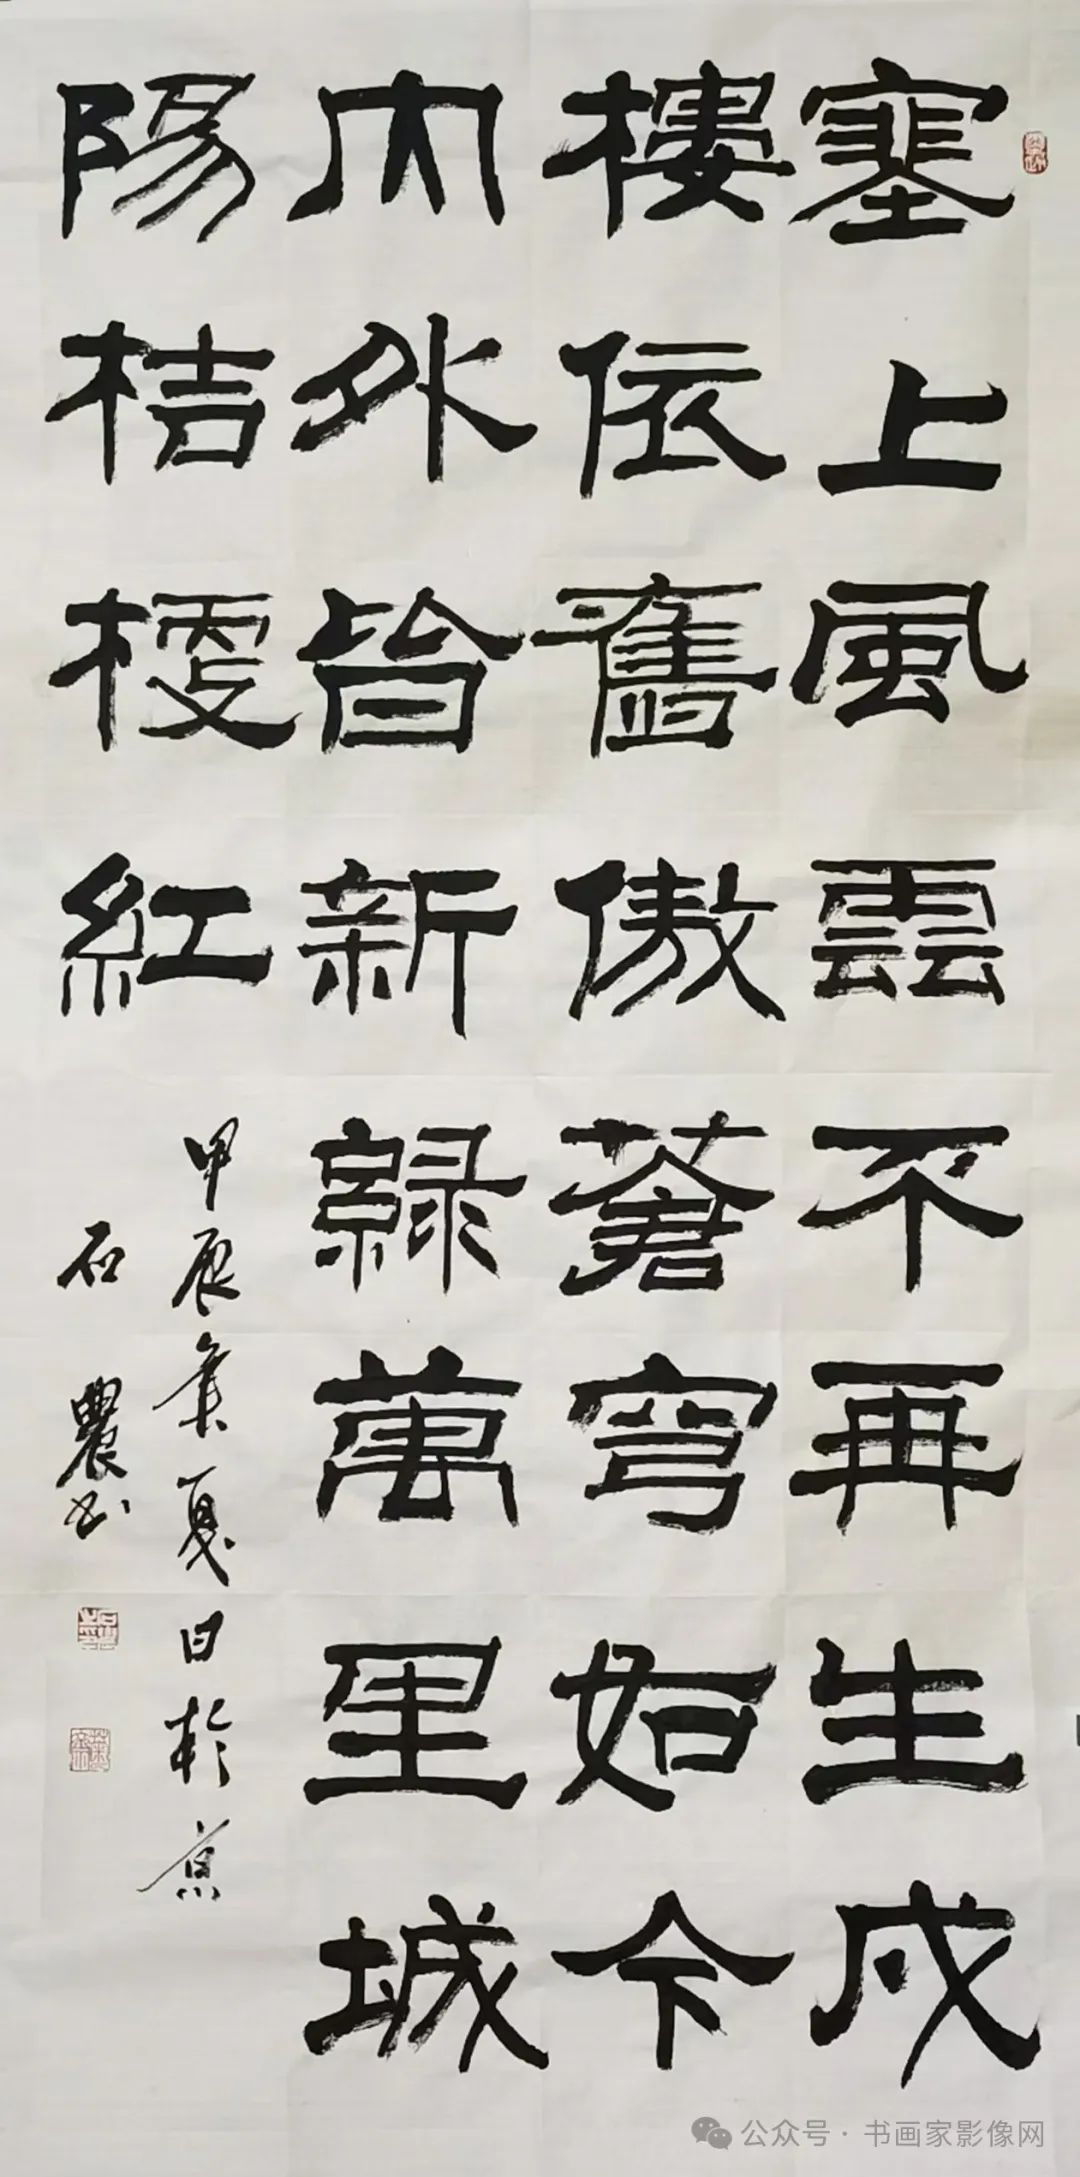 塞上風雲不再生戍
樓依舊傲蒼穹如今
內外皆新綠萬里城
陽桔梗紅
甲辰年夏日於
石農书
公众号 · 书画家影像网